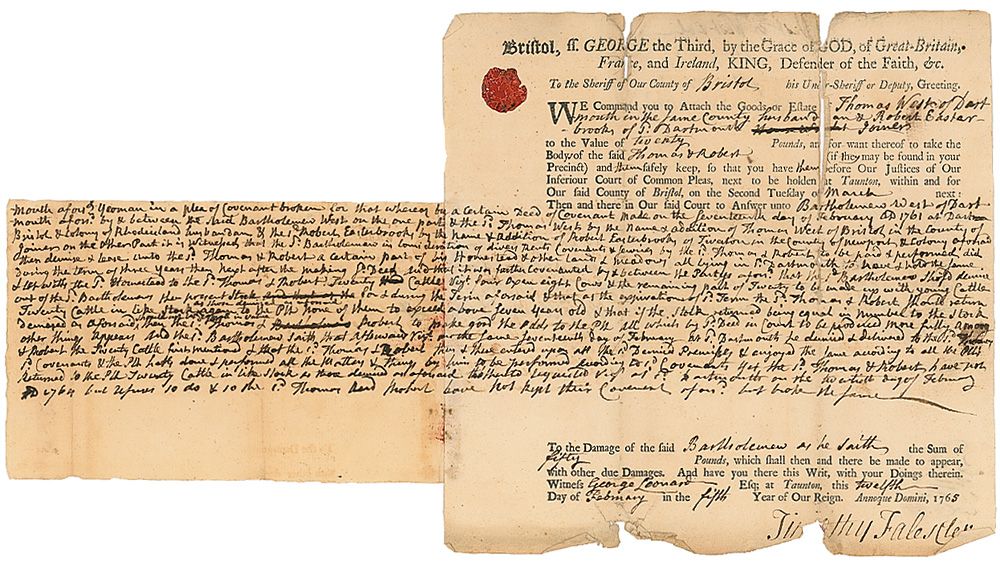 Bristol, ss. GEORGE the Third, by the Grace of GOD, of Great-Britain,
France, and Ireland, KING, Defender of the Faith, &c.
To the Sheriff of Our County of Bristol his Under-Sheriff or Deputy, Greeting.
WE Command you to Attach the Goods or Estate of Thomas West of Dart
mouth in the same County husbandman & Robert Easter-
brooks of sd. Dartmouth Joiner
to the Value of twenty Pounds, and for want thereof to take the
Body of the said Thomas & Robert (if they may be found in your
Precinct) and them safely keep, so that you have them before Our Justices of Our
Inferiour Court of Common Pleas, next to be holden at Taunton, within and for
Our said County of Bristol, on the Second Tuesday of March next:
Then and there in Our said Court to Answer unto Bartholemew West of Dart
mouth aforesd. Yeoman in a plea of Covenant broken for that whereas by a Certain Deed of Covenant made on the Seventeenth day of February AD 1761 at Dart
mouth aforesd. by & between the said Bartholemew West on the one part & the sd. Thomas West by the Name & addition of Thomas West of Bristol in the County of
Bristol & Colony of Rhodeisland husbandman & the sd. Robert Easterbrook by the Name & addition of Robert Easterbrooks of Tiverton in the County of newport & Colony aforesaid
Joiner on the Other Part it is Witnessed that the sd. Bartholemew in Consideration of divers Rent Covenants & by the sd. Thomas & Robert to be paid & performed did
then demise & lease unto the sd. Thomas & Robert a certain part of his Homestead & other lands & meadow all lying in sd. Dartmouth to have & hold the same
During the term of three Years then next after the making sd. Deed and that it was farther Covenanted by & between the Parties aforesd. that
& let with the sd. Homestead to the sd. Thomas & Robert Twenty Cattle Viz. four oxen eight Cows & the remaining part of Twenty to be made up with young Cattle
out of the sd. Bartholemews then present Stock & during the Term aforesaid & that at the expiration of sd. Term the sd. Thomas & Robert should return
Twenty Cattle in like to the Plt. None of them to exceed above Seven Years old & that if the stock returned being equal in number to the Stock
Demised as aforesaid, the sd. Thomas & Robert to make good the Odds to the Plt. All which by sd. Deed in Court to be produced more fully
other thing Appears And the sd. Bartholemew Saith, that the same Seventeenth day of February at sd. Dartmouth he demised & delivered to the sd. Thomas
& Robert the Twenty Cattle first mentioned & that the sd. Thomas & Robert then & there entered upon all the sd. Demised Premises & enjoyed the same according to all the
sd. Covenants & the Plt. hath done & performed all the Matters & things by him to be performed according to sd. Covenants Yet the sd. Thomas & Robert have not
Returned to the Plt. Twenty Cattle in like Stock as those demised aforesaid tho' thereto requested at sd. Dartmouth on the twentieth day of February
AD 1764 but refuses so to do & so the sd. Thomas and Robert have not kept their Covenant aforesd. but broke the same
To the Damage of the said Bartholemew as he saith the Sum of
fifty Pounds, which shall then and there be made to appear,
with other due Damages. And have you there this Writ, with your Doings therein.
Witness George Leonard Esq; at Taunton, this twelfth
Day of February in the fifth Year of Our Reign. Annoque Domini, 1765
Timothy Fales Cler